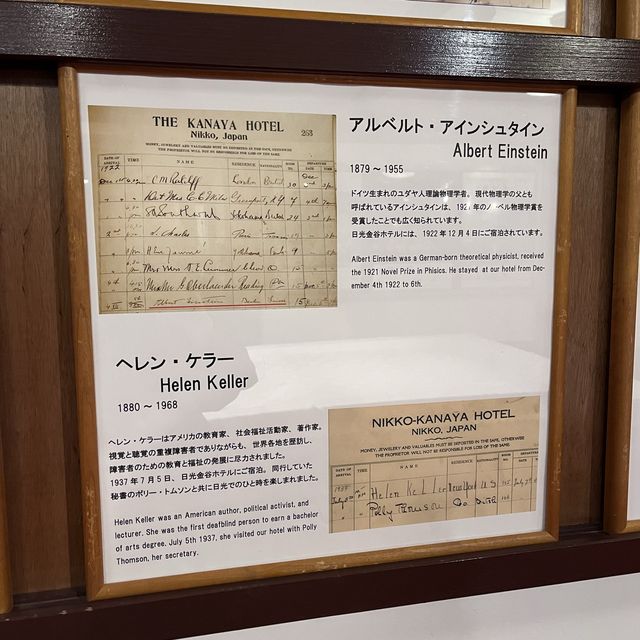 THE KANAYA HOTEL
Nikko, Japan
263
MONEY, JEWELRY AND VALUABLES MUST BE DEPOSITED IN THE SAFE, OTHERWISE
THE PROPRIETOR WILL NOT BE RESPONSIBLE FOR LOSS OF THE SAME.
DATE OF ARRIVAL TIME NAME RESIDENCE NATIONALITY ROOM NO. DEPARTURE
DATE TIME
1922
アルベルト・アインシュタイン
Albert Einstein
1879 ～ 1955
ドイツ生まれのユダヤ人理論物理学者。現代物理学の父とも
呼ばれているアインシュタインは、192 年のノーベル物理学賞を
受賞したことでも広く知られています。
日光金谷ホテルには、1922 年 12 月 4 日にご宿泊されています。
Albert Einstein was a German-born theoretical physicist, received
the 1921 Novel Prize in Phisics. He stayed at our hotel from Dec-
ember 4th 1922 to 6th.
ヘレン・ケラー
Helen Keller
1880 ～ 1968
ヘレン・ケラーはアメリカの教育家、社会福祉活動家、著作家。
視覚と聴覚の重複障害者でありながらも、世界各地を歴訪し、
障害者のための教育と福祉の発展に尽力されました。
1937 年 7 月 5 日、日光金谷ホテルにご宿泊。同行していた
秘書のポリー・トムソンと共に日光でのひと時を楽しまれました。
Helen Keller was an American author, political activist, and
lecturer. She was the first deafblind person to earn a bachelor
of arts degree. July 5th 1937, she visited our hotel with Polly
Thomson, her secretary.
NIKKO-KANAYA HOTEL
NIKKO, JAPAN
MONEY, JEWELERY AND VALUABLES MUST BE DEPOSITED IN THE SAFE, OTHERWISE
THE PROPRIETOR WILL NOT BE RESPONSIBLE FOR LOSS OF THE SAME.
DATE OF ARRIVAL TIME NAME RESIDENCE NATIONALITY ROOM NO. DEPARTURE
DATE
Helen Keller New York U S
Polly Thomson